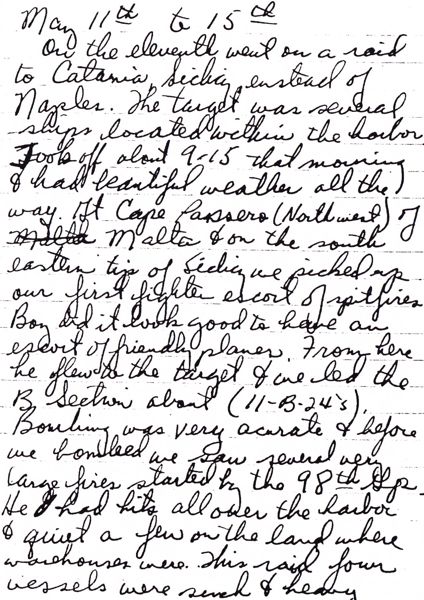 May 11th to 15th
On the eleventh went on a raid
to Catania, Sicily, enstead of
Naples. The target was several
ships located within the harbor.
Took off about 9-15 that morning
& had beautiful weather all the
way. At Cape Passero (Northwest) of
Malta Malta & on the south
eastern tip of Sicily we picked up
our first fighter escort of spitfires
Boy did it look good to have an
escort of friendly planes. From here
he flew to the target & we led the
B Section about (11-B-24's).
Bombing was very acurate & before
we bombed we saw several very
large fires started by the 98th Gps.
He had hits all over the harbor
& quiet a few on the land where
warehouses were. This raid four
vessels were sunk & heavy